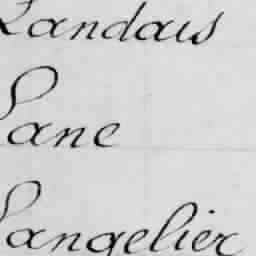 Landais
Lane
Langelier